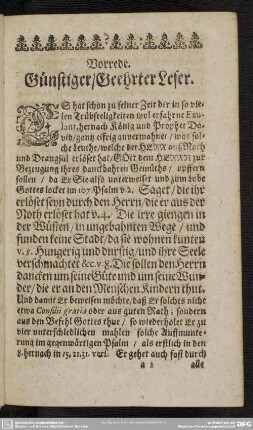 Vorrede.
Günstiger/Geehrter Leser.
ES hat schon zu seiner Zeit der in so vie-
len Trübseeligkeiten wol erfahrne Exu-
lant, hernach König und Prophet Da-
vid/gantz eifrig anvermahnet/was sol-
che Leuthe/welche der HERR auß Noth
und Drangsal erlöset hat/GOtt dem HERRN zur
Bezeugung ihres danckbahren Gemüths/opffern
sollen/da Er Sie also unterweiset und zum Lobe
Gottes locket im 107. Psalm v. 2. Saget/die ihr
erlöset seyn durch den Herrn/die er aus der
Noth erlöset hat v. 4. Die irre giengen in
der Wüsten/in ungebahnten Wege/und
funden keine Stad/da sie wohnen kunten
v. 5. Hungerig und durstig/und ihre Seele
verschmachtet &c. v. 8. Die sollen den Herrn
dancken um seine Güte und um seine Wun-
der/die er an den Menschen Kindern thut.
Und damit Er beweisen möchte/daß Er solches nicht
etwa Consilii gratiâ oder aus guten Rath; sondern
aus den Befehl Gottes thue/so wiederholet Er zu
vier unterschiedlichen mahlen solche Auffmunte-
rung im gegenwärtigen Psalm/als erstlich in den
8. hernach in 15. 21. 31. vers. Er gehet auch fast durch
a 2 alle